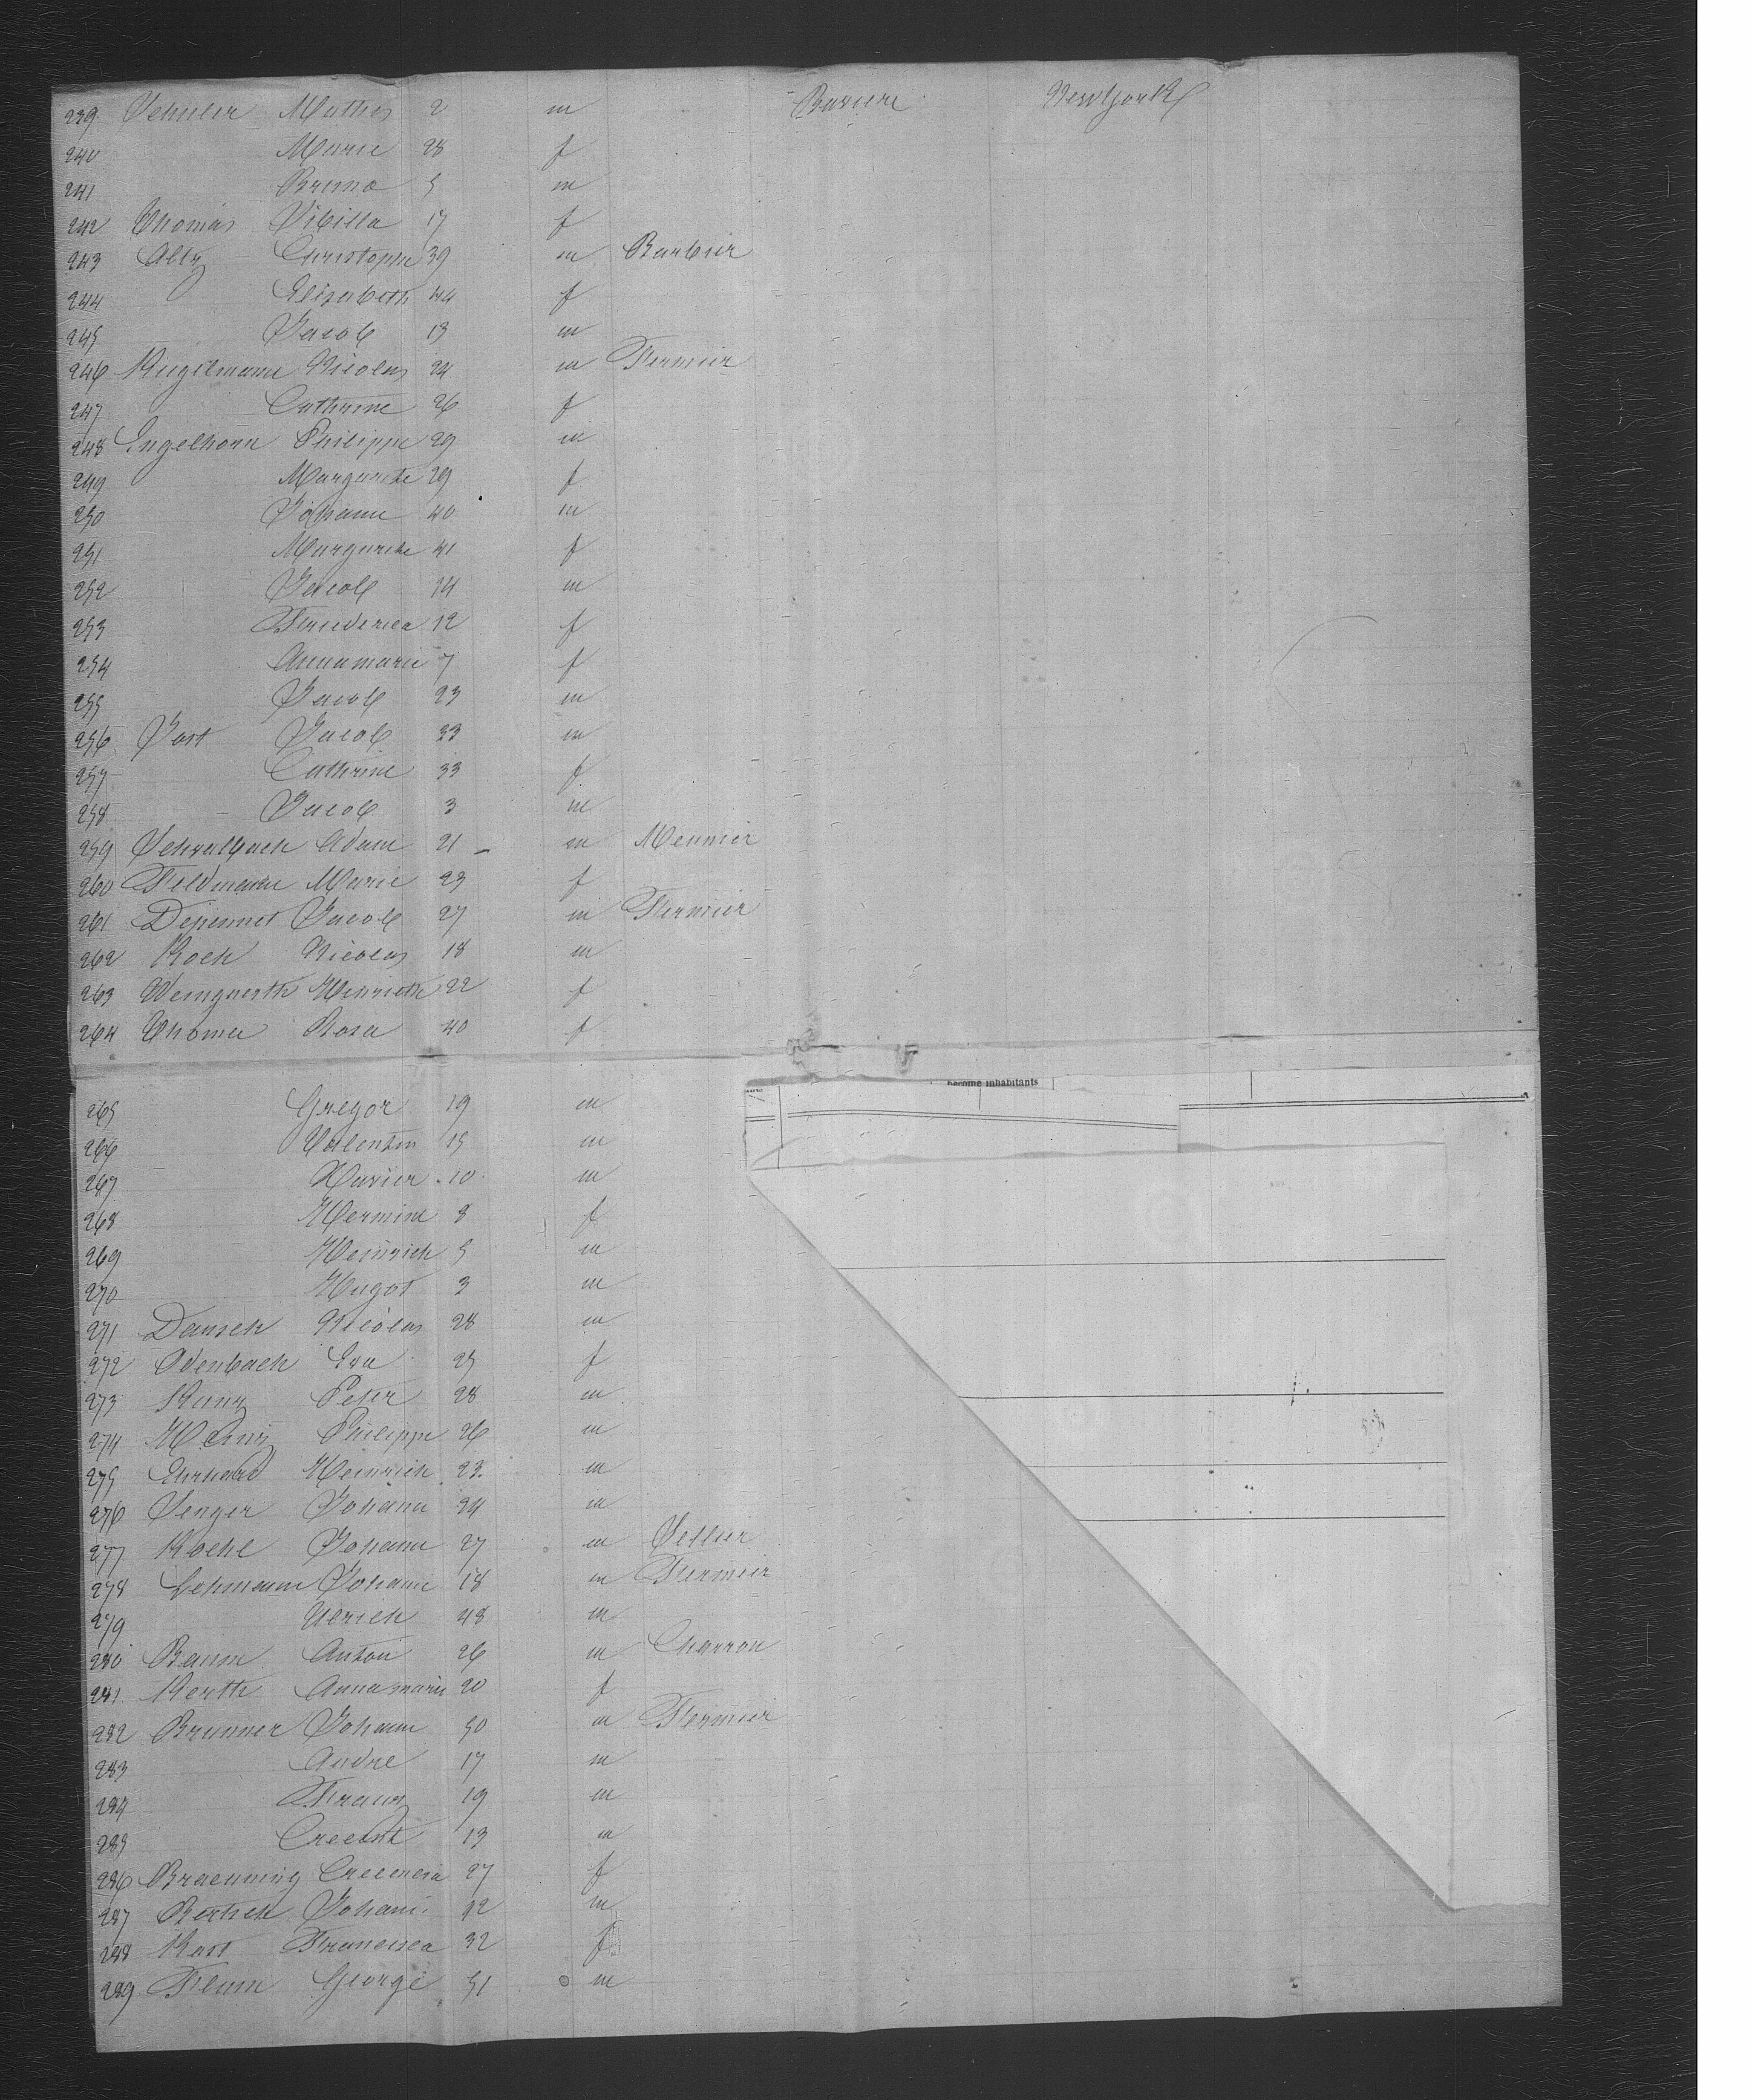 239 Schuler Mathes 2 m Baviere NewYork
240 Marie 28 f
241 Bruno 5 m
242 Thomas Sibilla 17 f
243 Christophe 39 m Barbier
244 Elisabeth 44 f
245 Jacob 13 m
246 Kugelmann Nicolas 24 m Fermier
247 Cathrine 26 f
248 Engelhorn Philippe 29 m
249 Margarethe 29 f
250 Johann 40 m
251 Margarethe 41 f
252 Jacob 14 m
253 Friederica 12 f
254 Annamarie 7 f
255 Jacob 23 m
256 Jost Jacob 33 m
257 Cathrine 33 f
258 Jacob 3 m
259 Schwalbach Adam 21 m Meunier
260 Feldmann Marie 23 f
261 Jacob 27 m Fermier
262 Koch Nicolas 18 m
263 Weingerth Henrieth 22 f
264 Thomer Rosa 40 f
become inhabitants
265 Gregor 19 m
266 Valentin 15 m
267 Xavier 10 m
268 Hermine 8 f
269 Heinrich 5 m
270 Hugot 3 m
271 Dausch Nicolas 28 m
272 Odenbach Eva 25 f
273 Kunz Peter 28 m
274 Heinz Philippe 26 m
275 Ehrhard Heinrich 23 m
276 Senger Johann 24 m
277 Koehl Johann 27 m Sellier
278 Lehmann Johann 18 m Fermier
279 Ulrich 48 m
280 Baum Anton 26 m Charron
281 Kerth Annamarie 20 f
282 Brunner Johann 50 m Fermier
283 Andre 17 m
284 Franz 19 m
285 13 m
286 Braeuning 27 f
287 Bertsch Johann 12 m
288 Kast Francisca 32 f
289 George 51 m